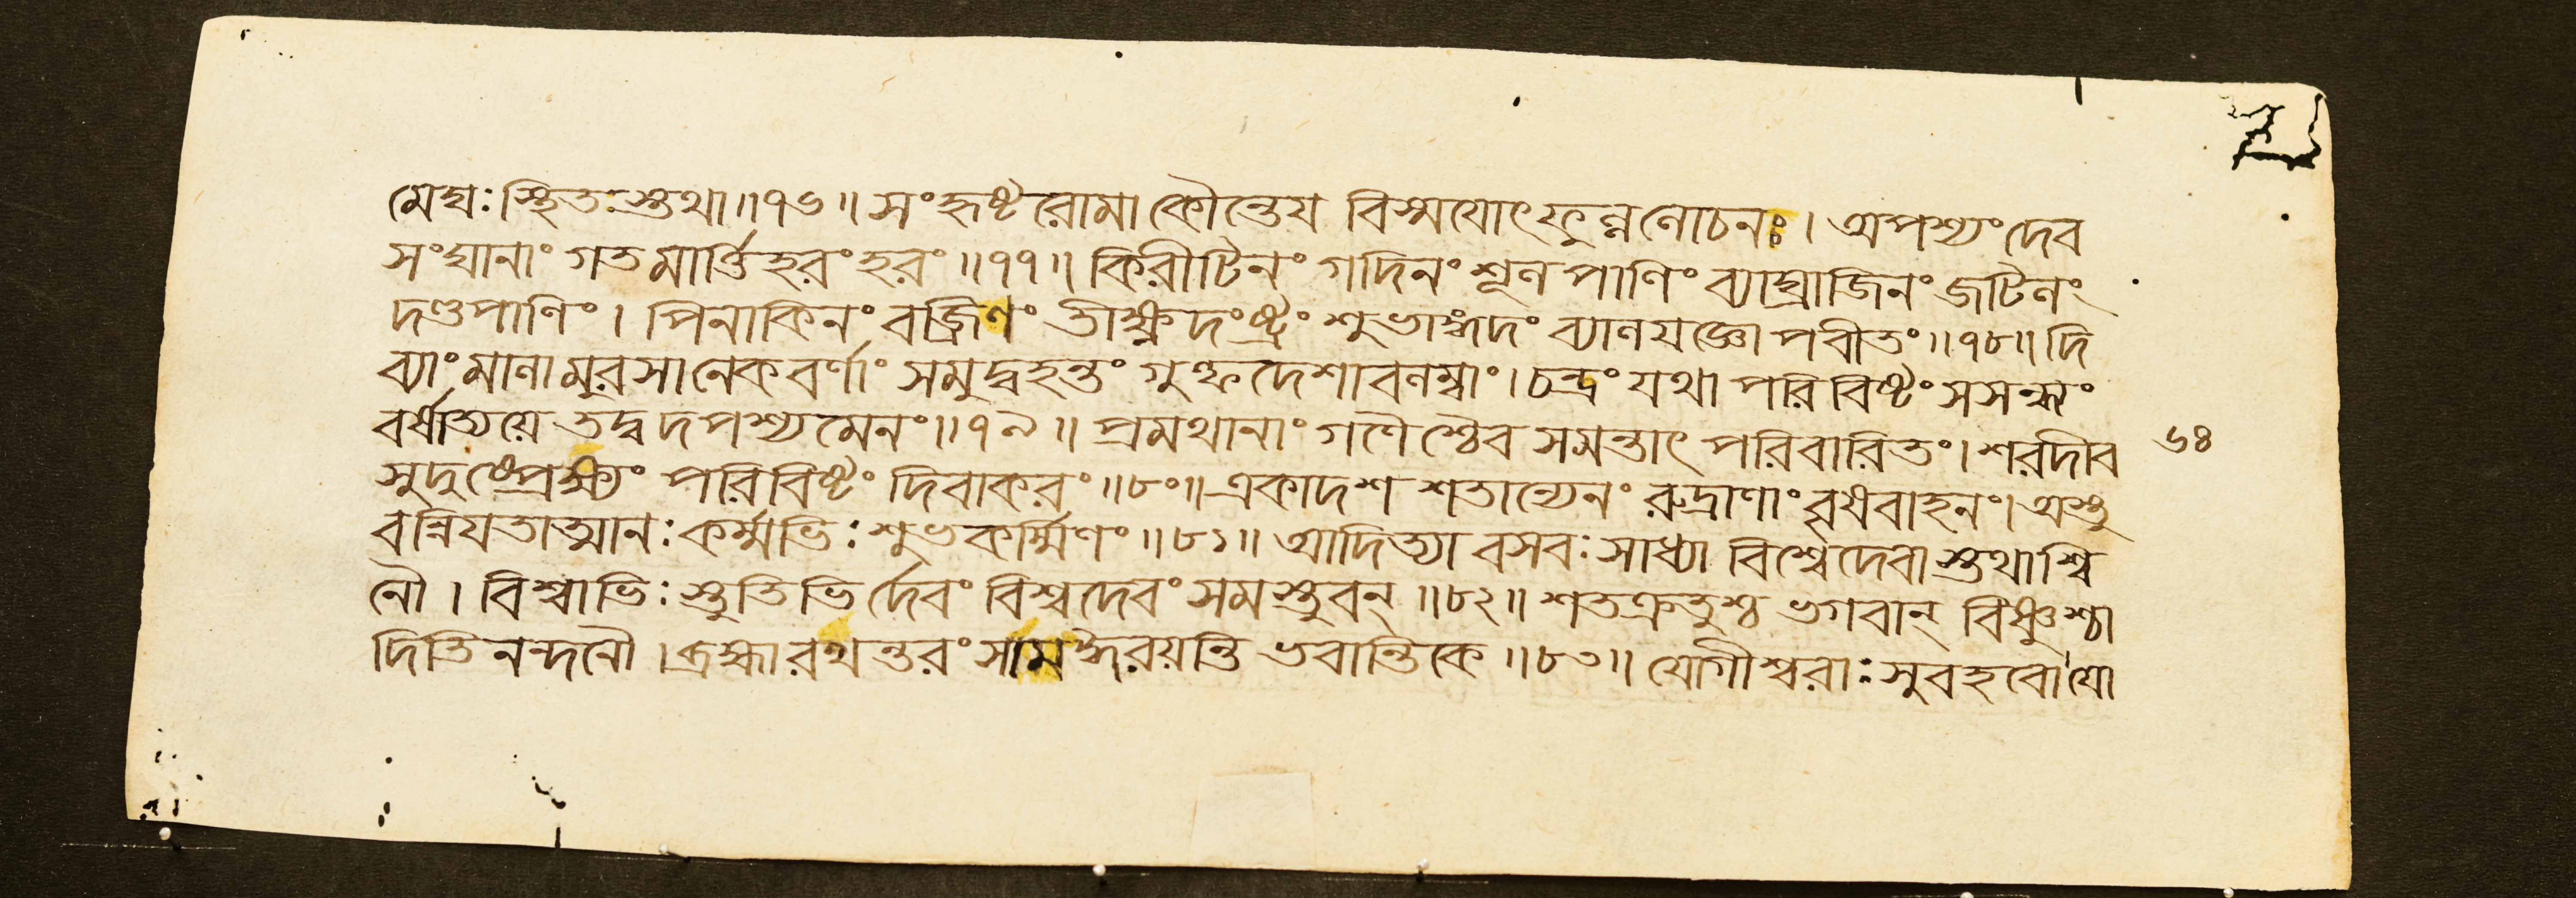 মেঘঃ স্থিতঃস্তথা॥৭৬॥ সংহৃষ্টরোমা কৌন্তেয় বিস্ময়োৎফুল্লনোচনঃ। অপশ্যং দেব
সংঘানাং গতমার্ত্তিহরং হরং॥৭৭॥ কিরীটিনং গদিনং শূলপাণিং ব্যাঘ্রাজিনং জটিলং
দণ্ডপাণিং। পিনাকিনং বজ্রিণং তীক্ষ্ণদংষ্ট্রং শুভাঙ্গদং ব্যালযজ্ঞোপবীতং॥৭৮॥ দি
ব্যাং মালামুরসানেকবর্ণাং সমুদ্বহন্তং গুল্ফদেশাবলম্বাং। চন্দ্রং যথা পরিবিষ্টং সসন্ধ্যং
বর্ষাত্যয়ে তদ্বদপশ্যমেনং॥৭৯॥ প্রমথানাং গণৈশ্চৈব সমন্তাৎ পরিবারিতং। শরদীব
সুদুষ্প্রেক্ষ্যং পরিবিষ্টং দিবাকরং॥৮০॥ একাদশ শতান্যেনং রুদ্রাণাং বৃষবাহনং। অস্তু
বন্নিযতাত্মানঃ কর্ম্মভিঃ শুভকর্ম্মিণং॥৮১॥ আদিত্যা বসবঃ সাধ্যা বিশ্বেদেবাস্তথাশ্বি
নৌ। বিশ্বাভিঃ স্তুতিভির্দেবং বিশ্বদেবং সমস্তুবন্॥৮২॥ শতক্রতুশ্চ ভগবান্ বিষ্ণুশ্চা
দিতিনন্দনৌ। ব্রহ্মা রথন্তরং সাম ঈরয়ন্তি ভবান্তিকে॥৮৩॥ যোগীশ্বরাঃ সুবহবো যো
৬৪